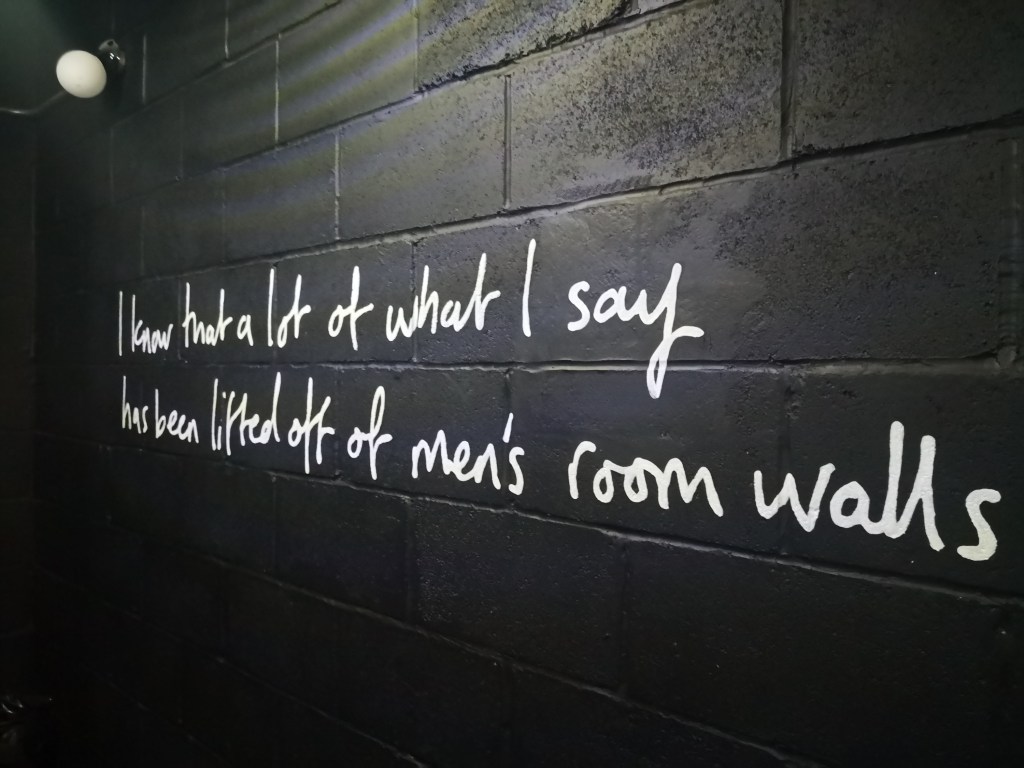 I know that a lot of what I say
has been lifted off of men's room walls